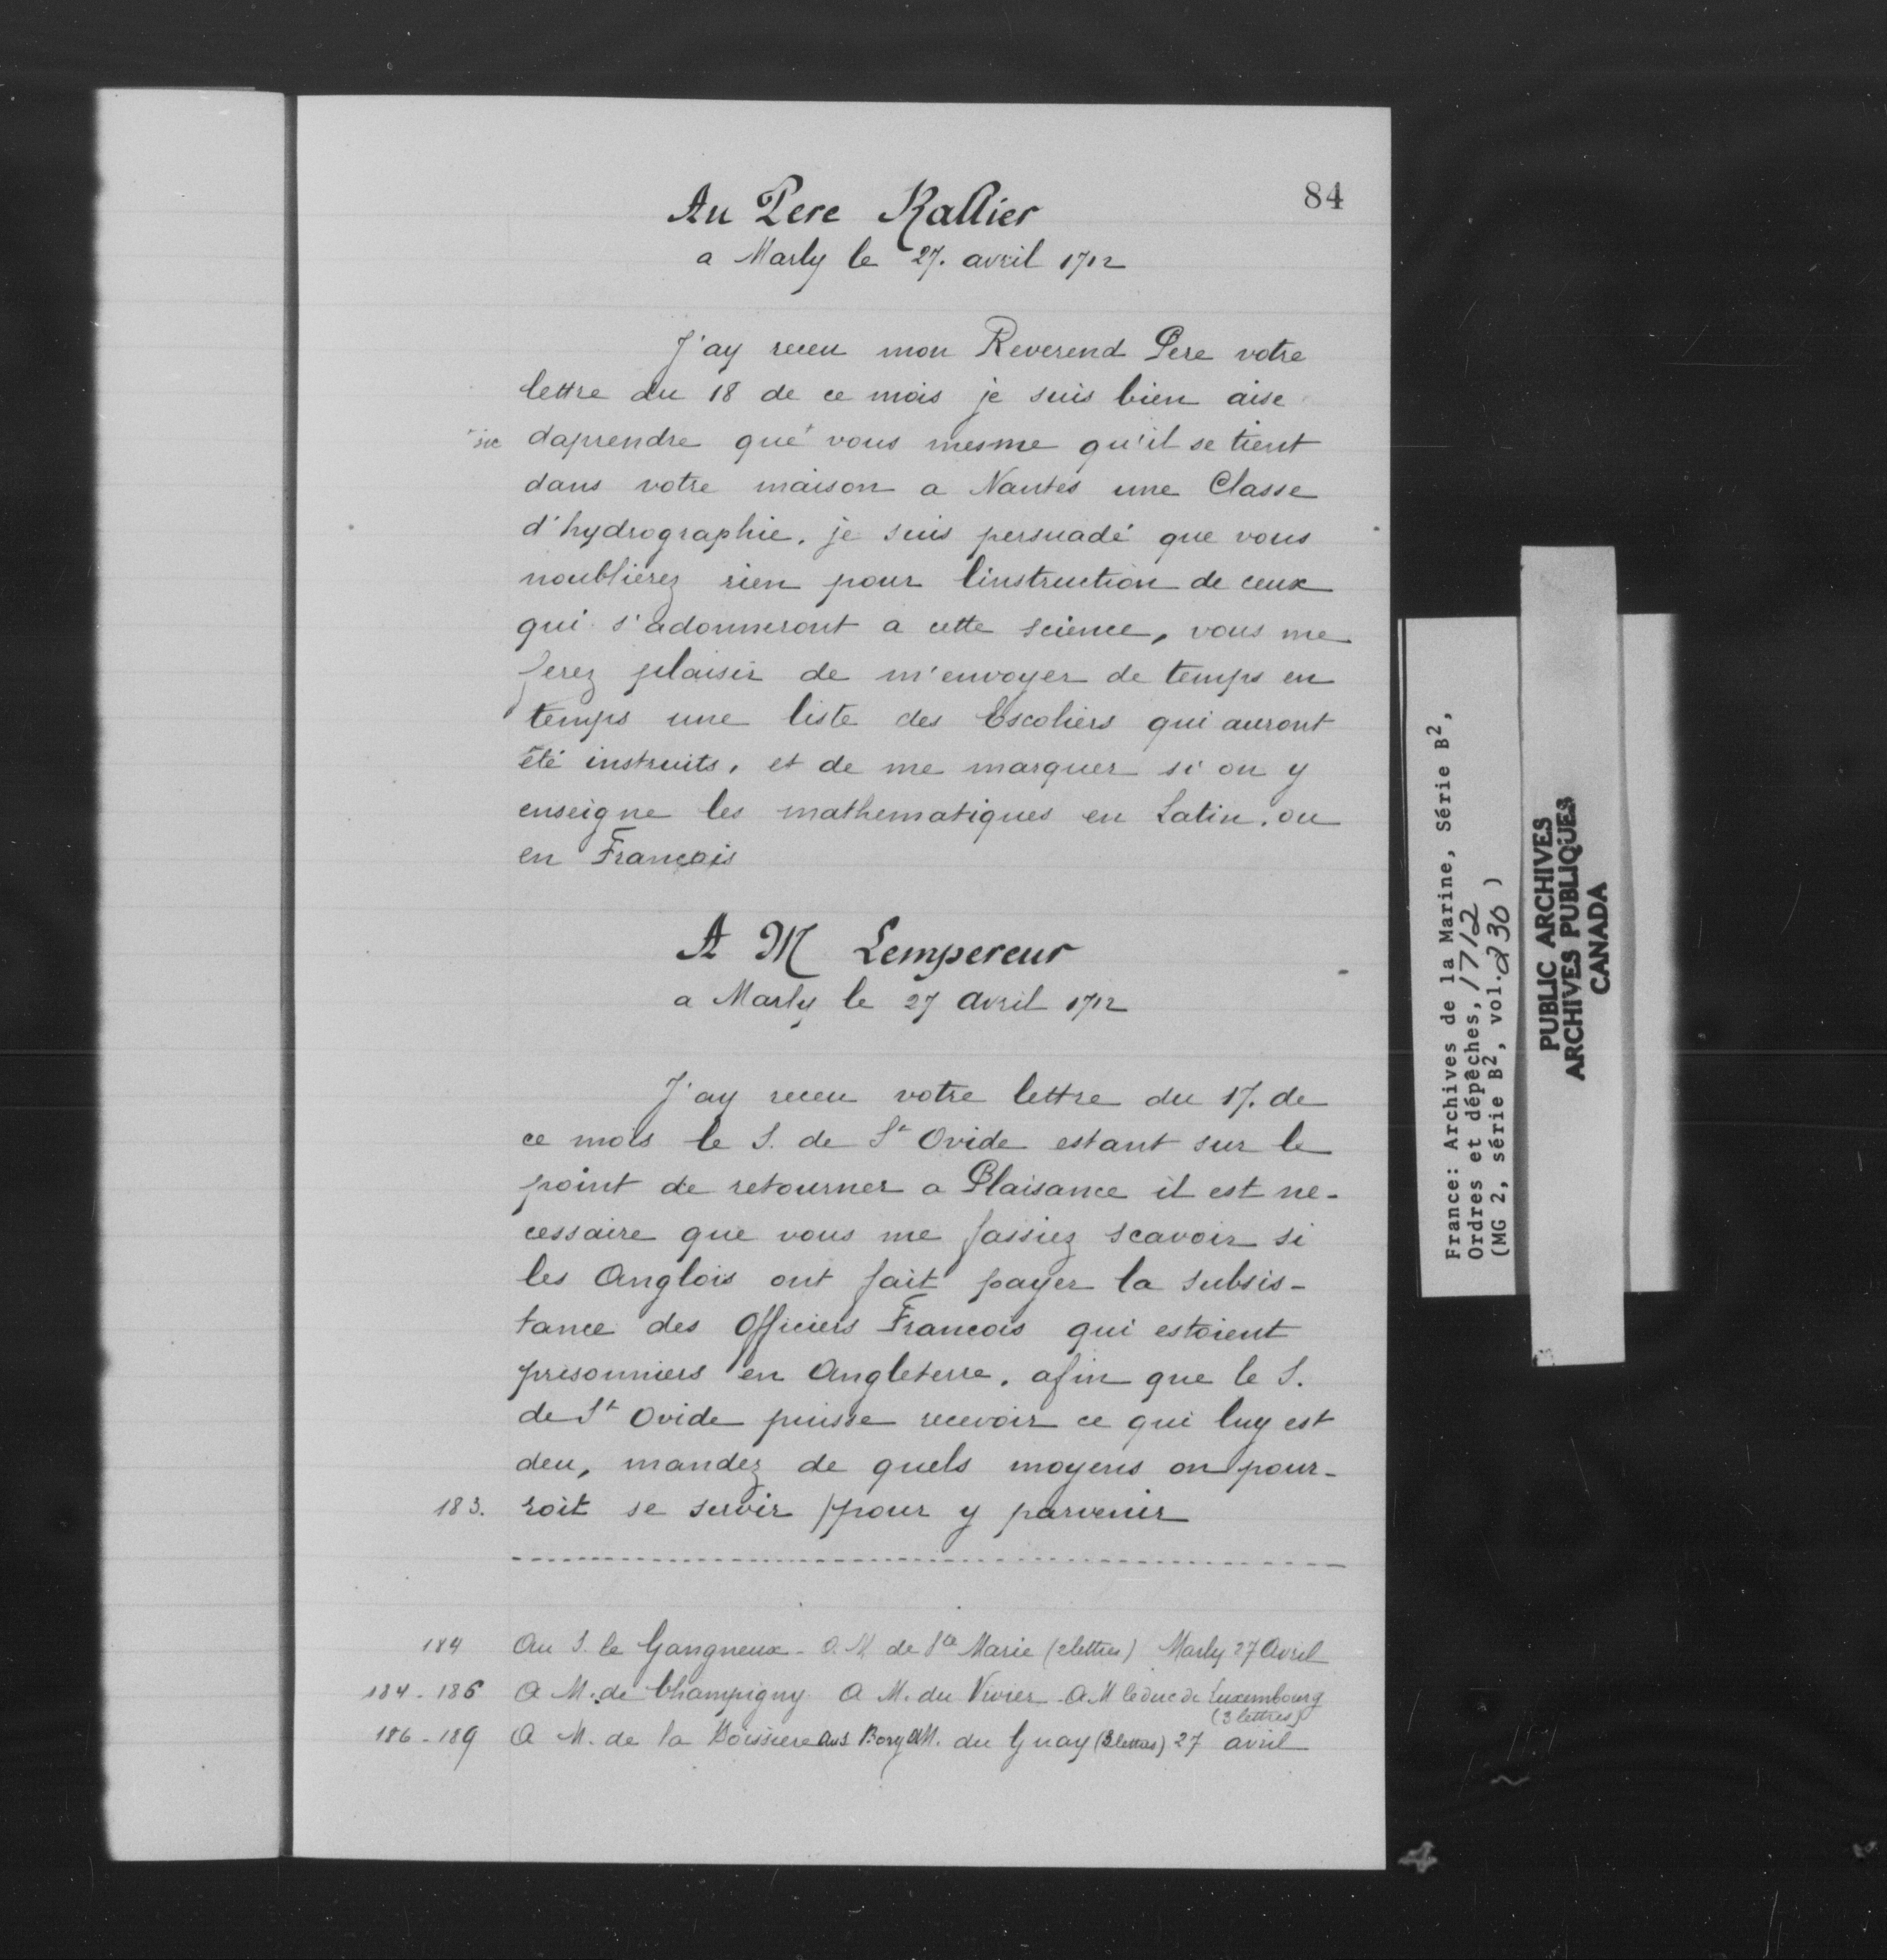 84
Au Pere Rallier
a Marly le 27. avril 1712
J'ay receu mon Reverend Pere votre
lettre du 18 de ce mois je suis bien aise
sic daprendre que vous mesme qu'il se tient
dans votre maison a Nantes une Classe
d'hydrographie. je suis persuadé que vous
noublierez rien pour linstruction de ceux
qui s'adonneront a cette science, vous me
ferez plaisir de m'envoyer de temps en
temps une liste des Escoliers qui auront
été instruits, et de me marquer si on y
enseigne les mathematiques en Latin. ou
en François
A M Lempereur
a Marly le 27 avril 1712
J'ay receu votre lettre du 17. de
ce mois le S. de St Ovide estant sur le
point de retourner a Plaisance il est ne-
cessaire que vous me fassiez scavoir si
les Anglois ont fait payer la subsis-
tance des Officiers Francois qui estoient
prisonniers en Angleterre, afin que le S.
de St Ovide puisse recevoir ce qui luy est
deu, mandez de quels moyens on pour-
183. roit se servir /pour y parvenir
184 Au S. le Gangneux - A. M. de Ste Marie (2 lettres) Marly 27 Avril
184-186 A M. de Champigny A M. du Vivier A M le duc de Luxembourg
(3 lettres)
186-189 A M. de la Boissiere Au S Bory A M. du Guay (3 lettres) 27 avril
France: Archives de la Marine, Série B2,
Ordres et dépêches, 1712
(MG 2, série B2, vol. 230)
PUBLIC ARCHIVES
ARCHIVES PUBLIQUES
CANADA